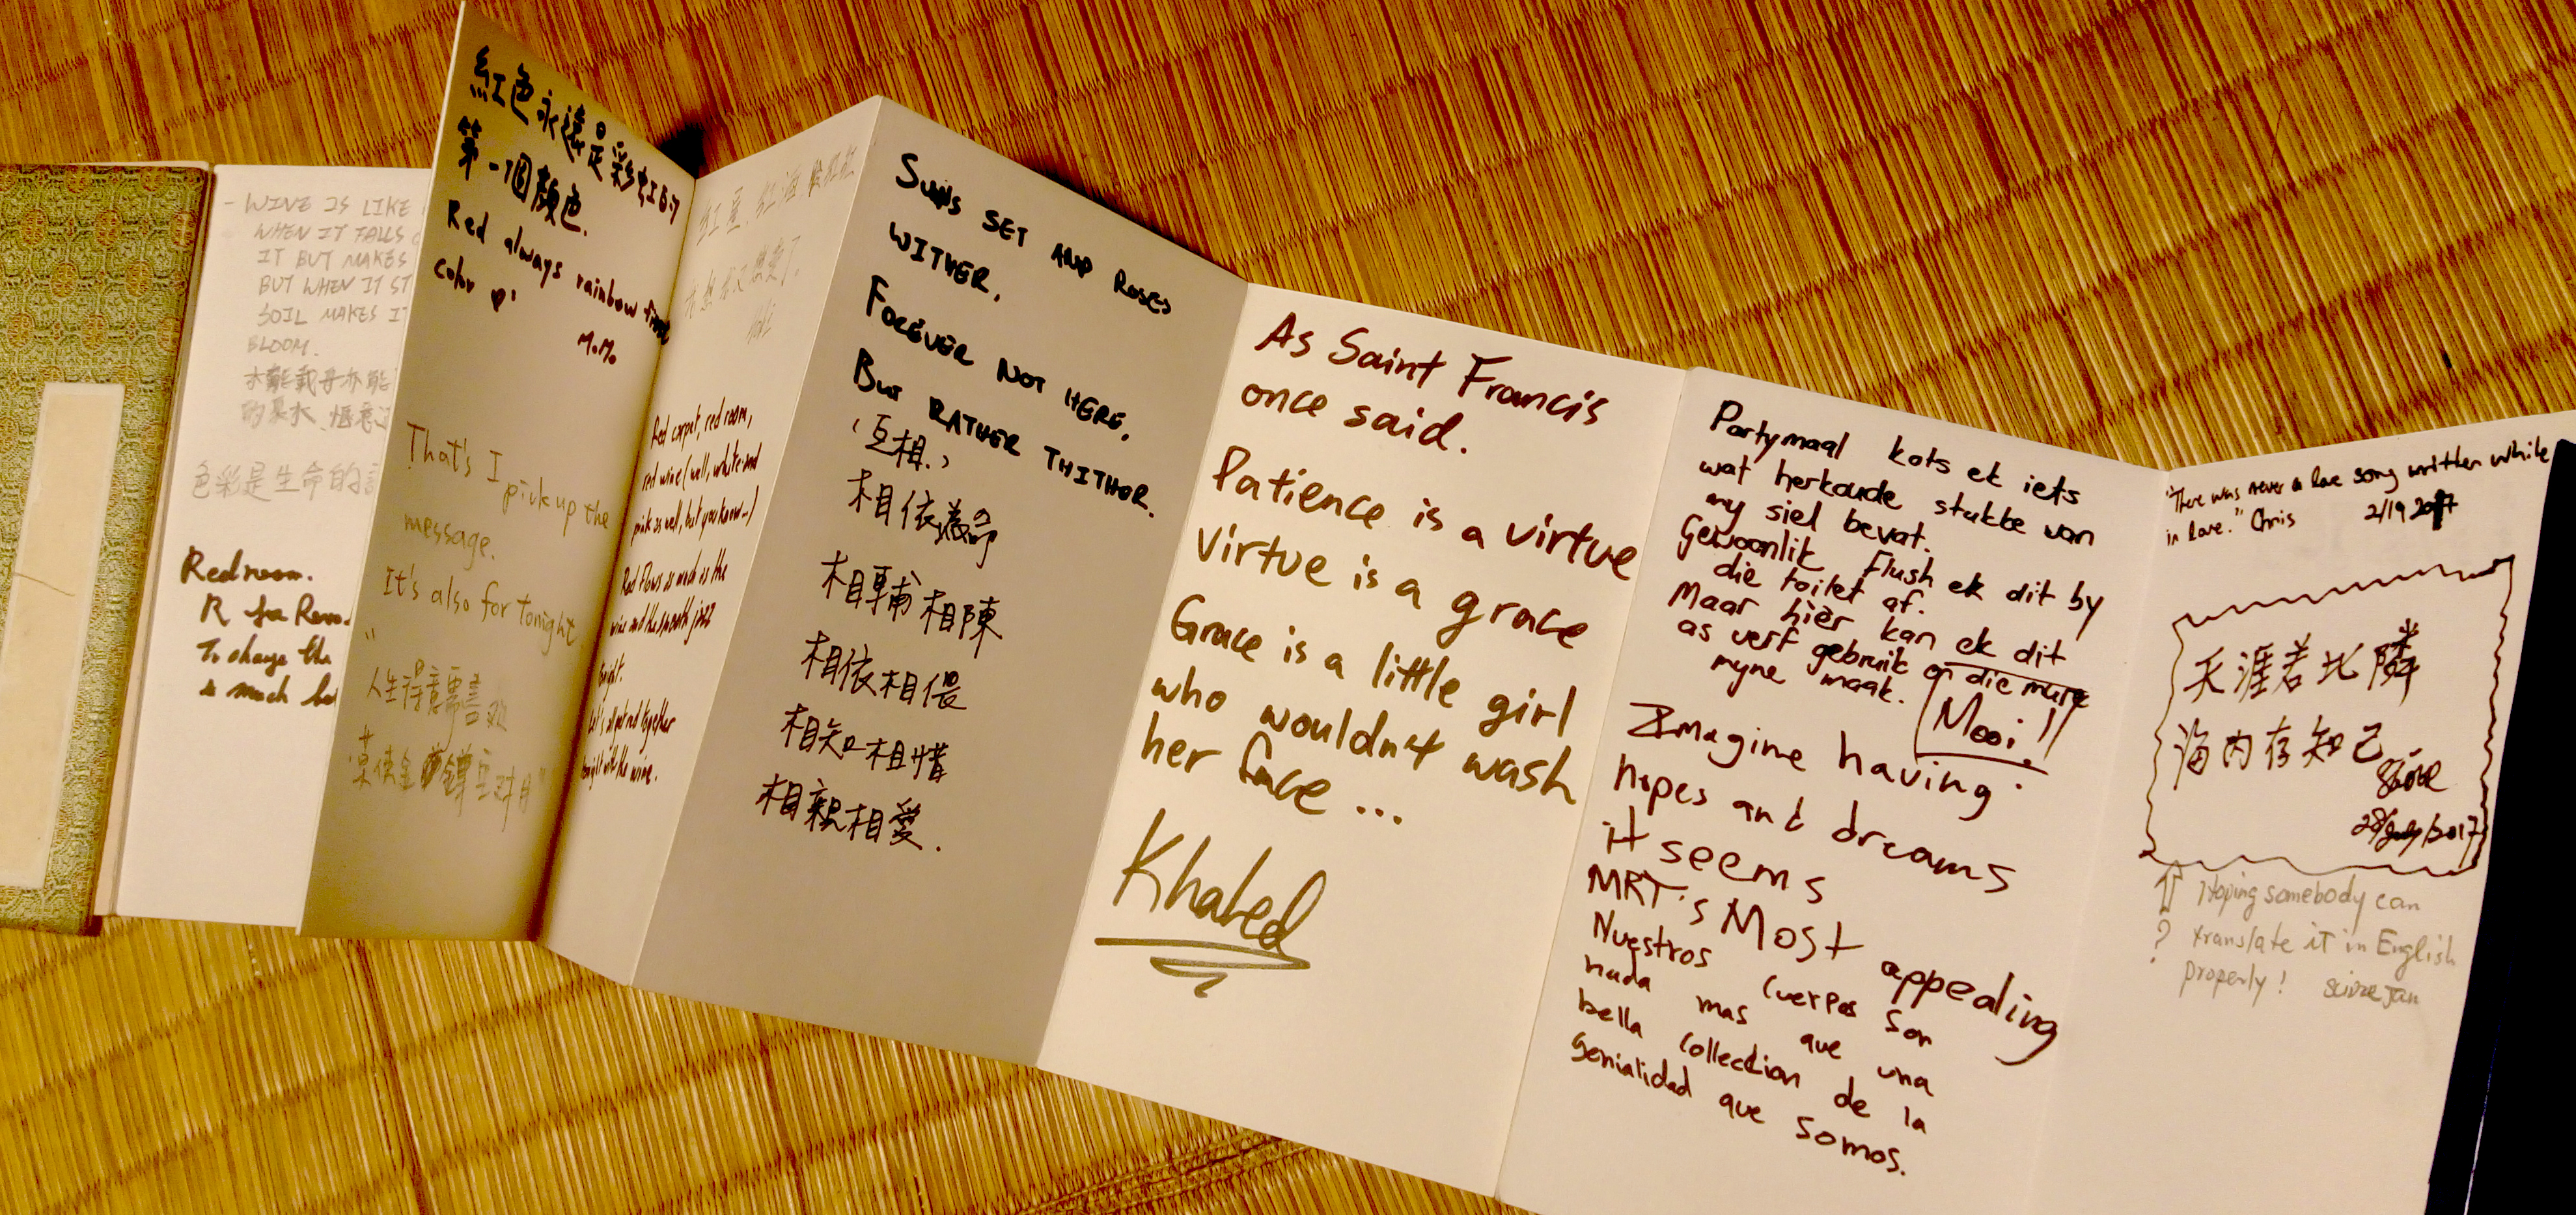 - WINE IS LIKE
WHEN IT FALLS
IT BUT MAKES
BUT WHEN IT
SOIL MAKES IT
BLOOM.
水能載舟亦能
色彩是生命的
Redroom.
R for
To change the
is much
紅色永遠是彩虹的
第一個顏色.
Red always rainbow first
color
M.M.
That's I pick up the
message.
It's also for tonight
"
人生得意須盡歡
莫使金樽空對月"
Red carpet, red room,
red wine (well, white and
pink as well, but you know~)
Red flows as much as the
wine and the smooth jazz
tonight.
Let's all get together
tonight with the wine.
Suns SET AND ROSES
WITHER,
FOREVER NOT HERE,
BUT RATHER THITHER.
(互相..)
相依為命
相輔相陳
相依相偎
相知相惜
相親相愛.
As Saint Francis
once said.
Patience is a virtue
virtue is a grace
Grace is a little girl
who wouldn't wash
her face ...
Khaled
Partymaal kots ek iets
wat herkoude stukke van
my siel bevat.
Gewoonlik flush ek dit by
die toilet af.
Maar hier kan ek dit
as verf gebruik on die mure
myne maak.
Mooi!!
Imagine having
hopes and dreams
it seems
MRT's Most appealing
Nuestros cuerpos son
nada mas que una
bella collection de la
genialidad que somos.
"There was never a love song written while
in love." Chris 2/19 2017
天涯若比隣
海内存知己
28/July/2017
↑ Hoping somebody can
? translate it in English
properly!